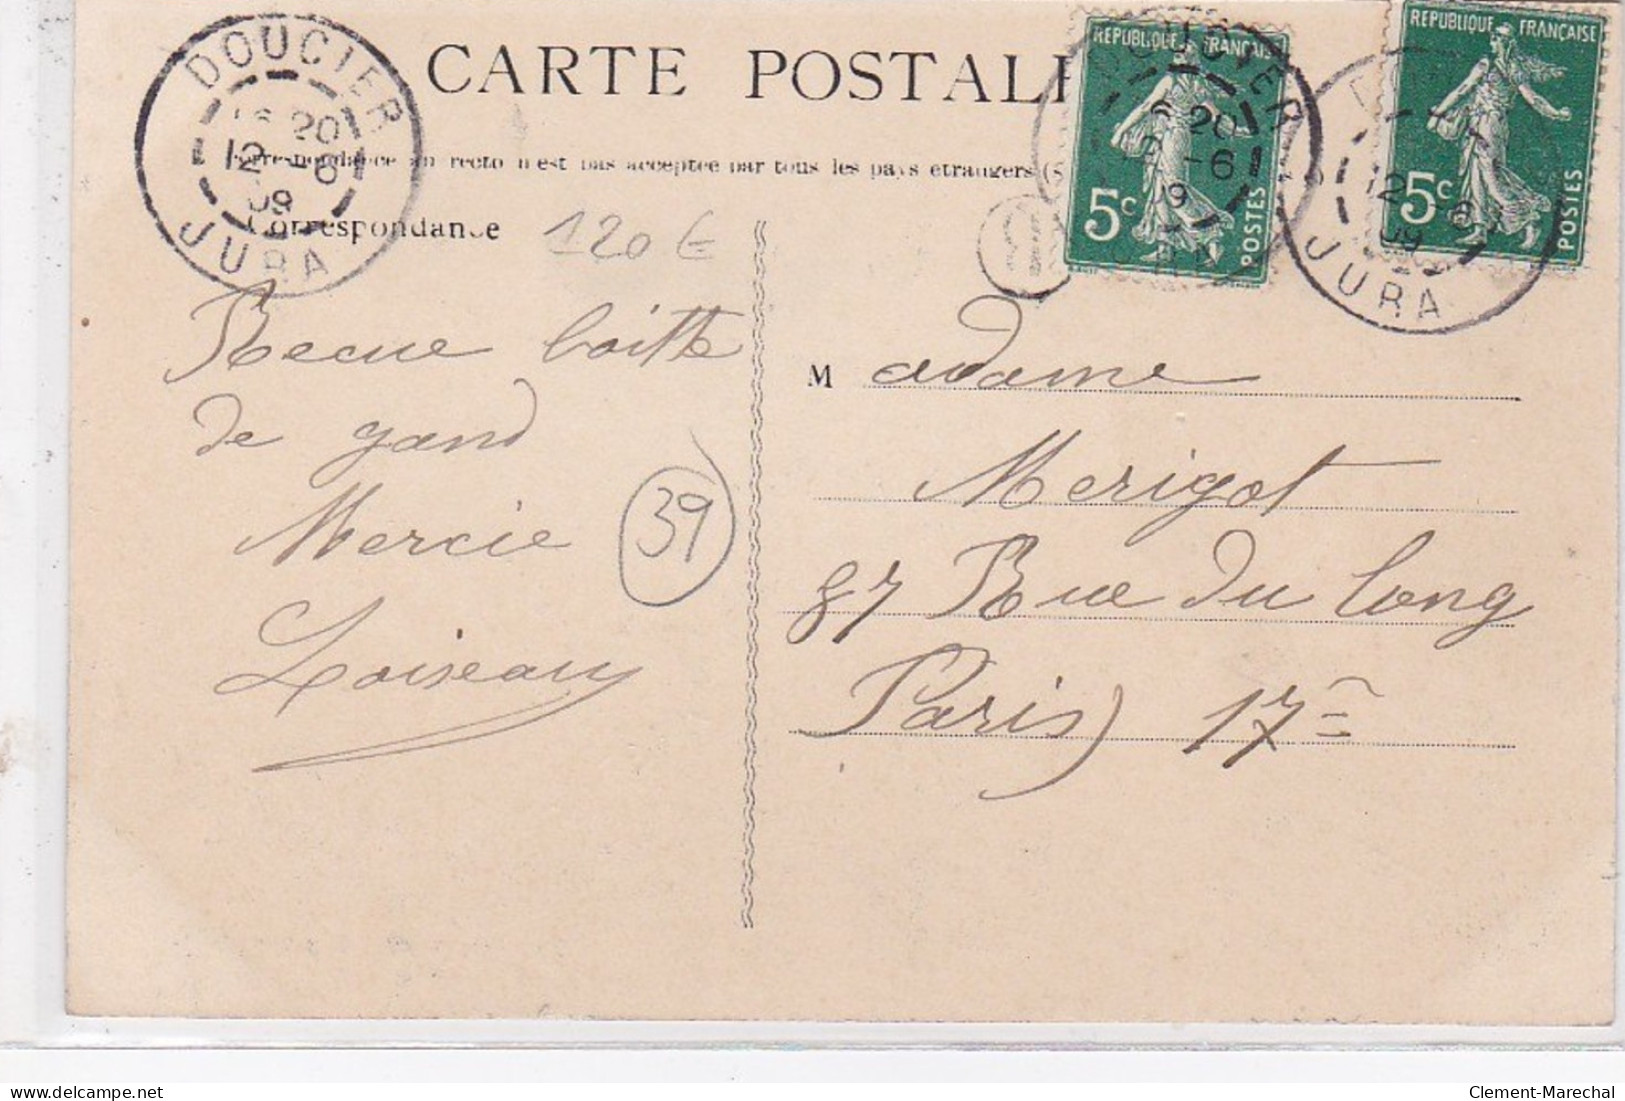 CARTE POSTALE
DOUCIER
20
12 -6
09
JURA
REPUBLIQUE FRANÇAISE
5c
POSTES
REPUBLIQUE FRANÇAISE
5c
POSTES
20
-6
09
12
09
JURA
Correspondance au recto n'est pas acceptée par tous les pays étrangers (s
Correspondance
120 €
Recue boitte
de gand
Mercie
39
Loiseau
M adame
Merigot
87 Rue du Long
Paris) 17e
delcampe.net
Clement-Marechal